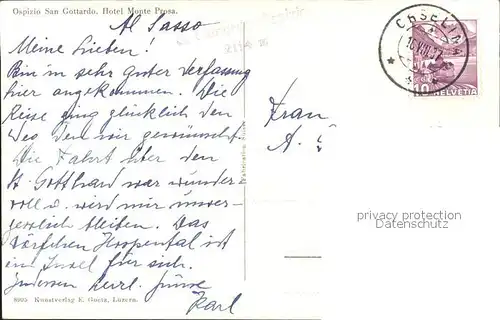 Ospizio San Gottardo. Hotel Monte Prosa.
Al Sasso
Meine Lieben!
Bin in sehr guter Verfassung
hier angekommen. Die
Reise ging glücklich den
Weg den wir gewünscht.
Die Fahrt über den
St. Gotthard war wunder
voll u. wird mir unver-
gesslich bleiben. Das
Dörfchen Hospental ist
ein Insel für sich.
Indessen herzl. Grüsse
Karl
8005 Kunstverlag E. Goetz, Luzern.
Frau
A.
10
HELVETIA
privacy protection
Datenschutz